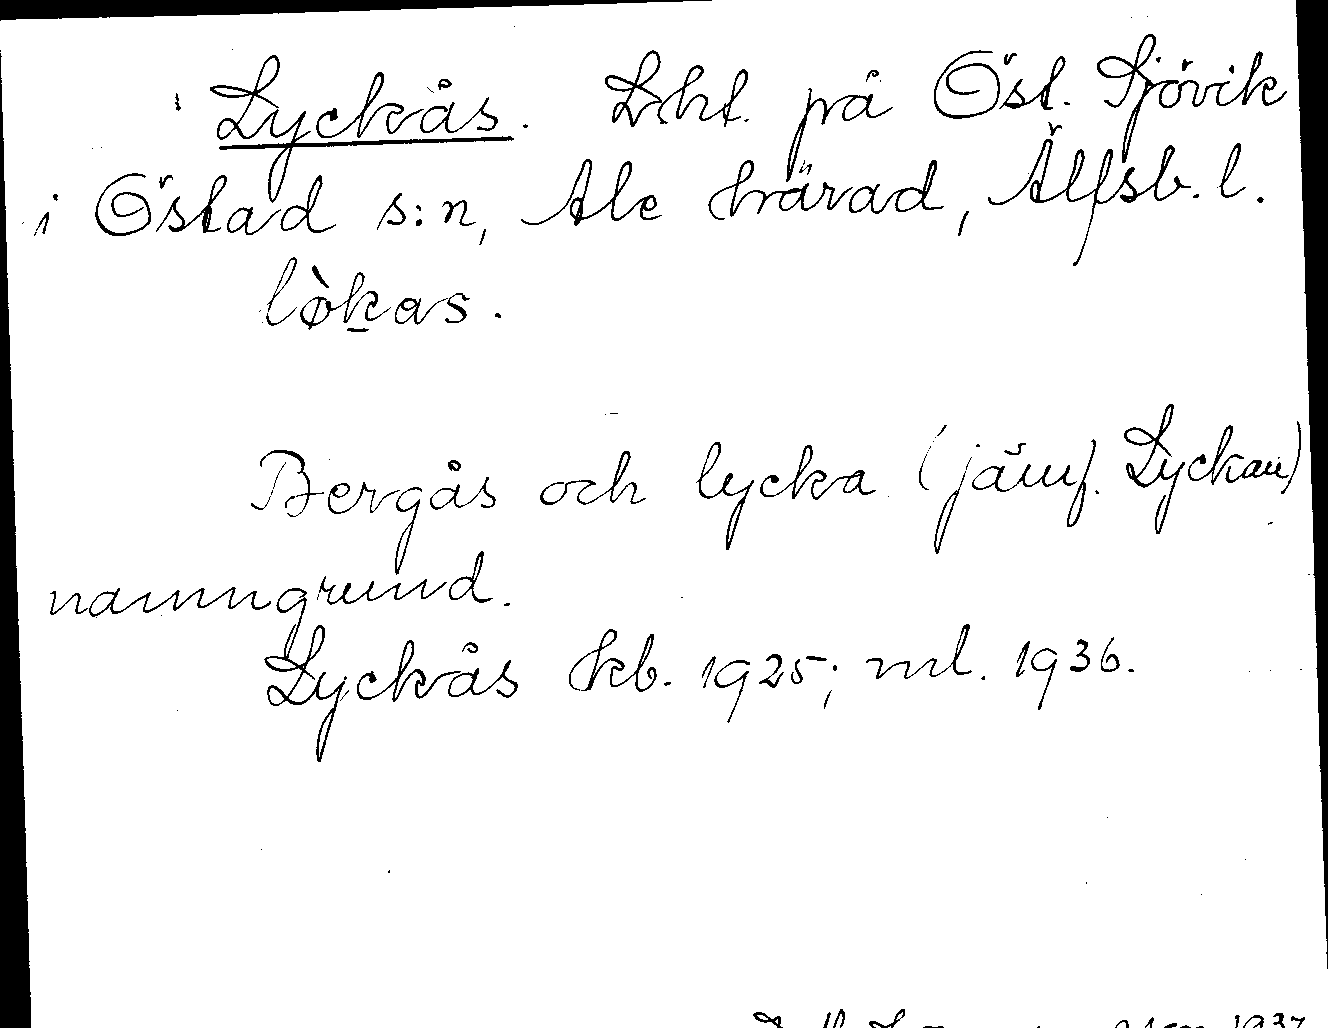 Lyckås. Lht. på Öst. Sjövik
i Östad s:n, Ale härad, Älfsb. l.
lø̀kas.
Bergås och lycka (jämf. Lyckan)
namngrund.
Lyckås kb. 1925; ml. 1936.
1937